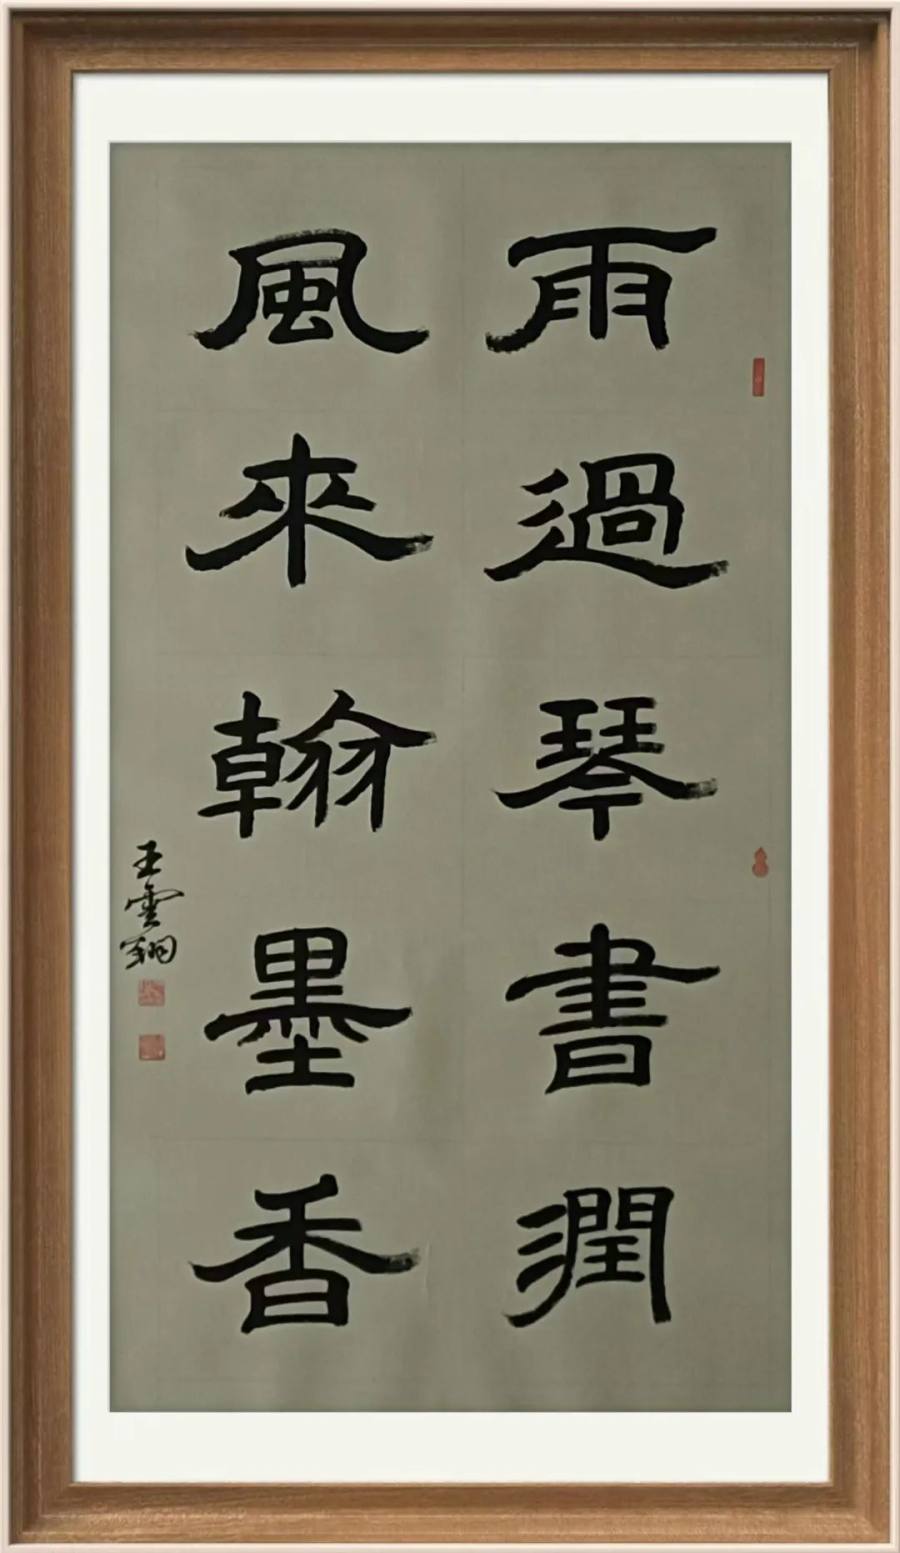 雨過琴書潤
風來翰墨香
王雲翔